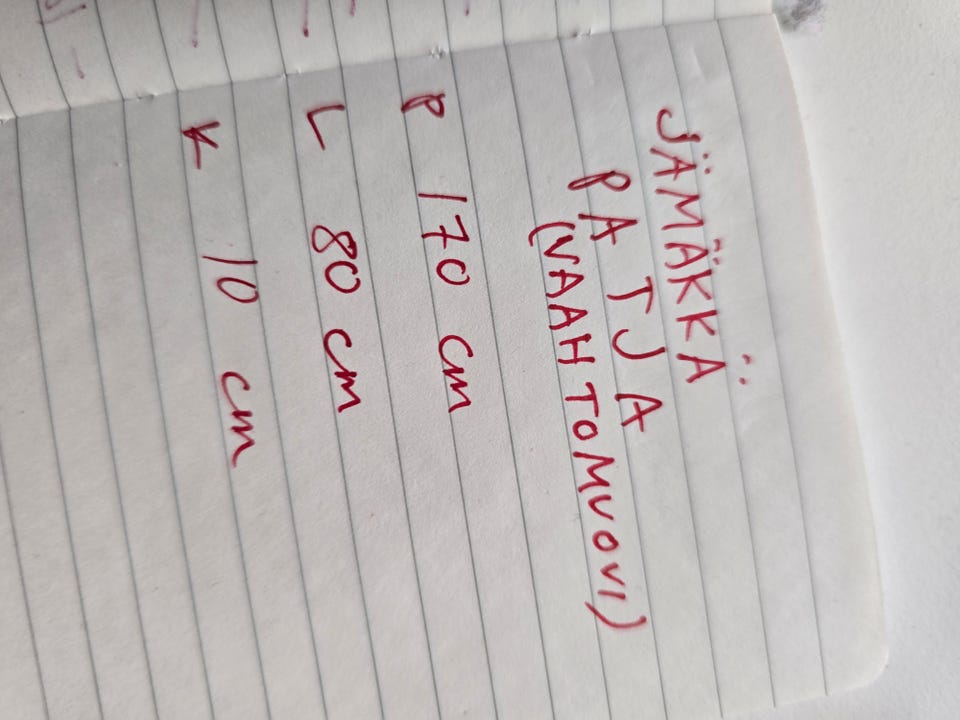 JÄMÄKKÄ
PATJA
(VAAHTOMUOVI)
P 170 cm
L 80 cm
K 10 cm